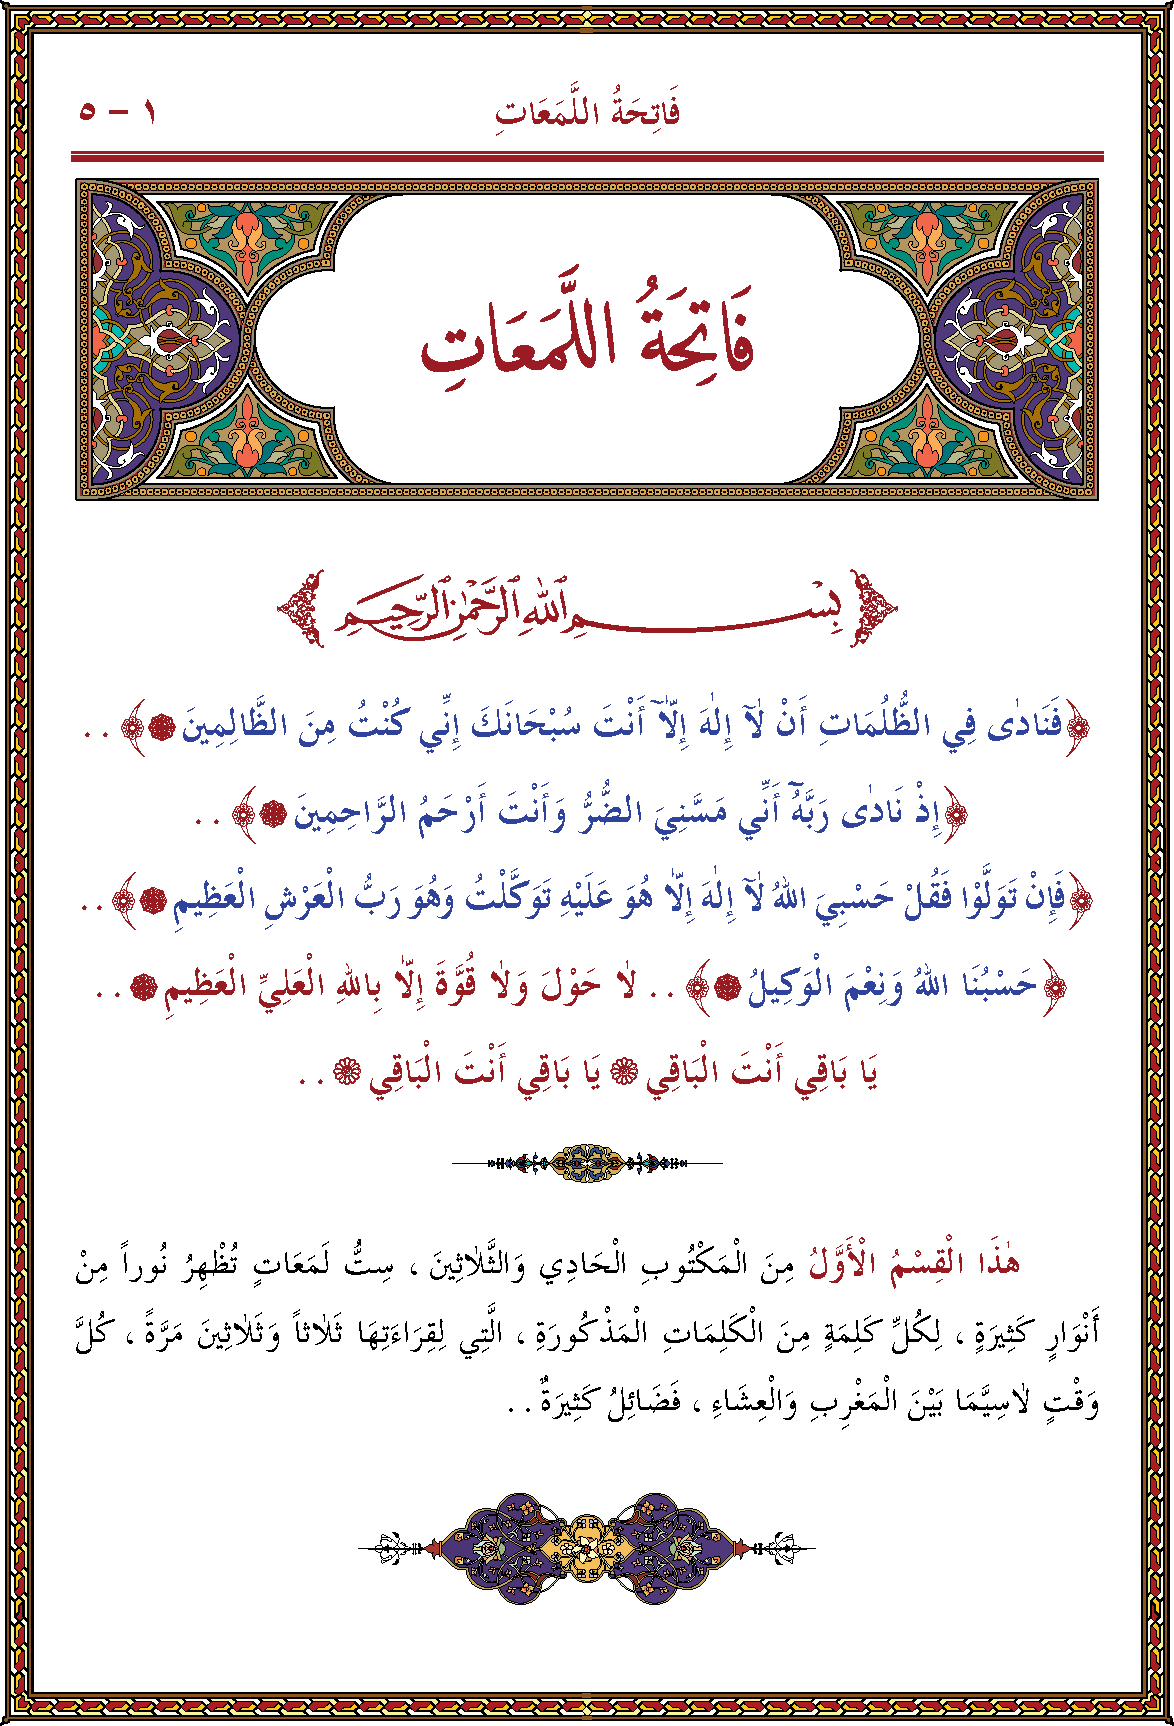 فَاتِحَةُ اللَّمَعَاتِ ١ – ٥
فَاتِحَةُ اللَّمَعَاتِ
بِسْمِ اللهِ الرَّحْمٰنِ الرَّحِيمِ
﴿فَنَادٰى فِي الظُّلُمَاتِ أَنْ لَآ إِلٰهَ إِلَّآ أَنْتَ سُبْحَانَكَ إِنِّي كُنْتُ مِنَ الظَّالِمِينَ﴾ . .
﴿إِذْ نَادٰى رَبَّهُٓ أَنِّي مَسَّنِيَ الضُّرُّ وَأَنْتَ أَرْحَمُ الرَّاحِمِينَ﴾ . .
﴿فَإِنْ تَوَلَّوْا فَقُلْ حَسْبِيَ اللهُ لَآ إِلٰهَ إِلَّا هُوَ عَلَيْهِ تَوَكَّلْتُ وَهُوَ رَبُّ الْعَرْشِ الْعَظِيمِ﴾ . .
﴿حَسْبُنَا اللهُ وَنِعْمَ الْوَكِيلُ﴾ . . لَا حَوْلَ وَلَا قُوَّةَ إِلَّا بِاللهِ الْعَلِيِّ الْعَظِيمِ . .
يَا بَاقِي أَنْتَ الْبَاقِي يَا بَاقِي أَنْتَ الْبَاقِي . .
هٰذَا الْقِسْمُ الْأَوَّلُ مِنَ الْمَكْتُوبِ الْحَادِي وَالثَّلَاثِينَ ، سِتُّ لَمَعَاتٍ تُظْهِرُ نُوراً مِنْ
أَنْوَارٍ كَثِيرَةٍ ، لِكُلِّ كَلِمَةٍ مِنَ الْكَلِمَاتِ الْمَذْكُورَةِ ، الَّتِي لِقِرَاءَتِهَا ثَلَاثاً وَثَلَاثِينَ مَرَّةً ، كُلَّ
وَقْتٍ لَاسِيَّمَا بَيْنَ الْمَغْرِبِ وَالْعِشَاءِ ، فَضَائِلُ كَثِيرَةٌ . .